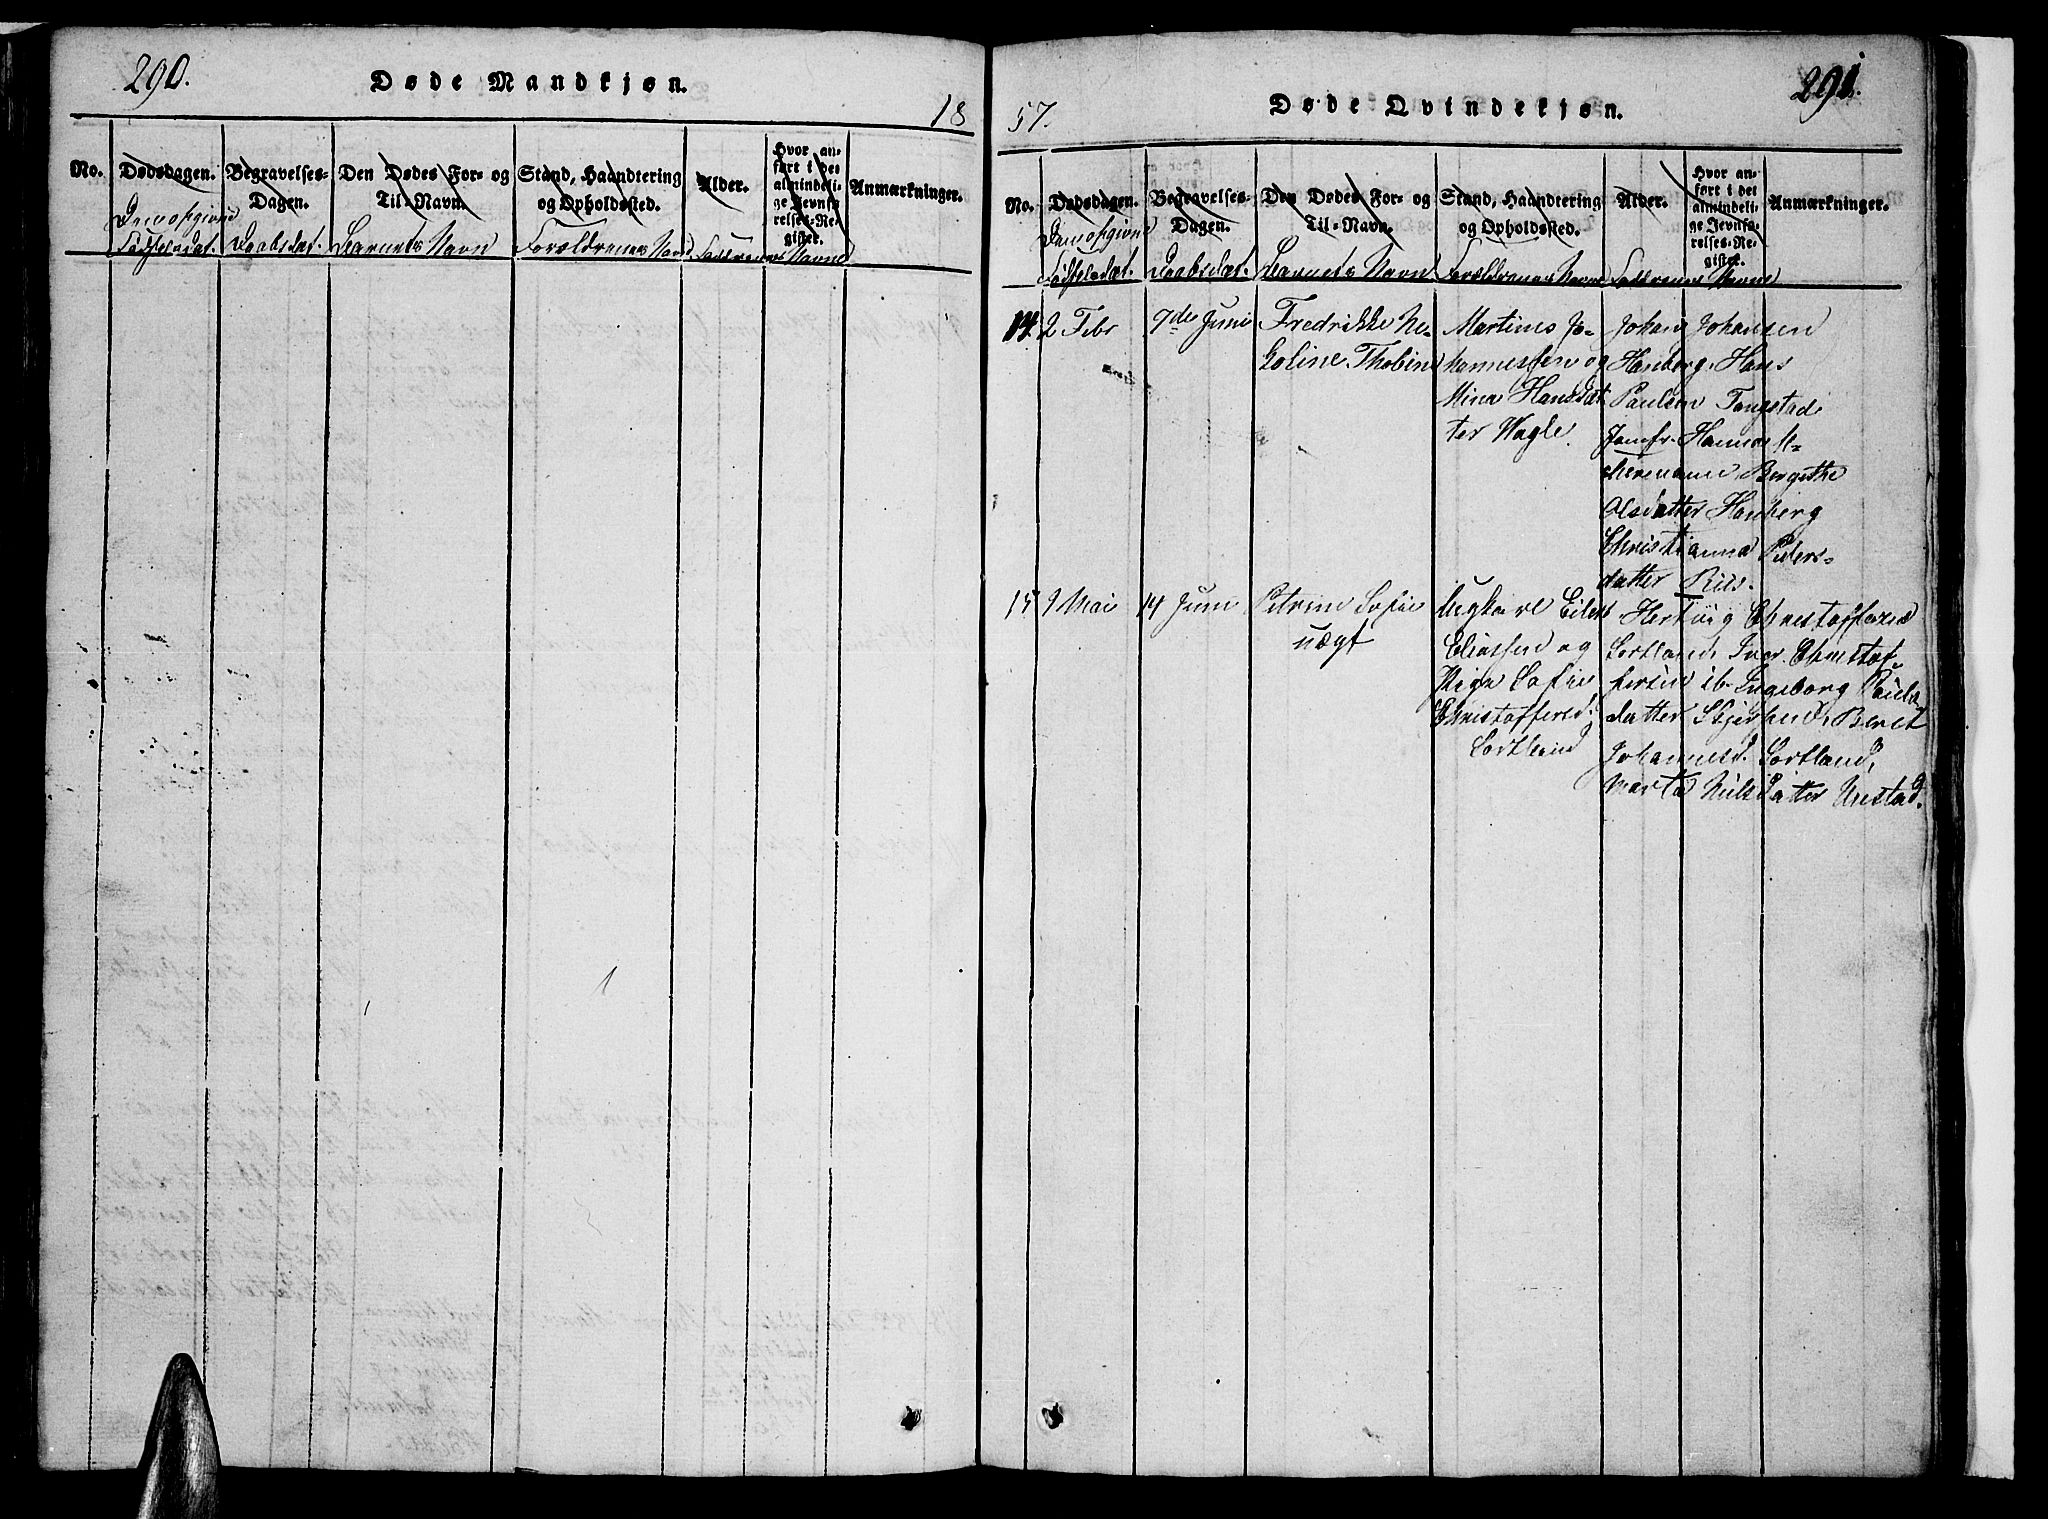 290.
Døde Mandkjøn.
18
No.
Dødsdagen.
Begravelses-
Dagen.
Den Dødes For- og
Til-Navn.
Stand, Haandtering
og Opholdssted.
Alder.
Hvor an-
ført i det
almindeli-
ge Jevnfø-
relses-Re-
gister.
Anmærkninger.
Den opgivne
Fødselsdat.
Daabsdat.
Barnets Navn
Forældrenes Navne
Faddrenes Navne
291.
57.
Døde Qvindekjøn.
No.
Dødsdagen.
Begravelses-
Dagen.
Den Dødes For- og
Til-Navn.
Stand, Haandtering
og Opholdssted.
Alder.
Hvor an-
ført i det
almindeli-
ge Jevnfø-
relses-Re-
gister.
Anmærkninger.
Den opgivne
Fødselsdat.
Daabsdat.
Barnets Navn
Forældrenes Navne
Faddrenes Navne
14. 2 Febr
7de Juni
Fredrikke Ni-
koline Thobine
Martines Jo-
hannessen og
Mina Hansdat-
ter Vagle.
Johan Johansen
Hanberg. Hans
Paulsen Tungstad
Jomfr. Hanna
Beregithe
Olsdatter Hanberg
Christianna Peders-
datter Riis.
15 9 Mai
14 Juni
Petrine Sofie
uægt
Ungkarl Eilert
Eliassen og
Pige Sofie
Christoffersd.
Sortland
Hertvig Christoffersen
Sortland, Iver Christof-
fersen ib. Ingeborg Pouls-
datter Skjerhend, Beret
Johannesd. Sortland,
Marta Nilsdatter Urestad.